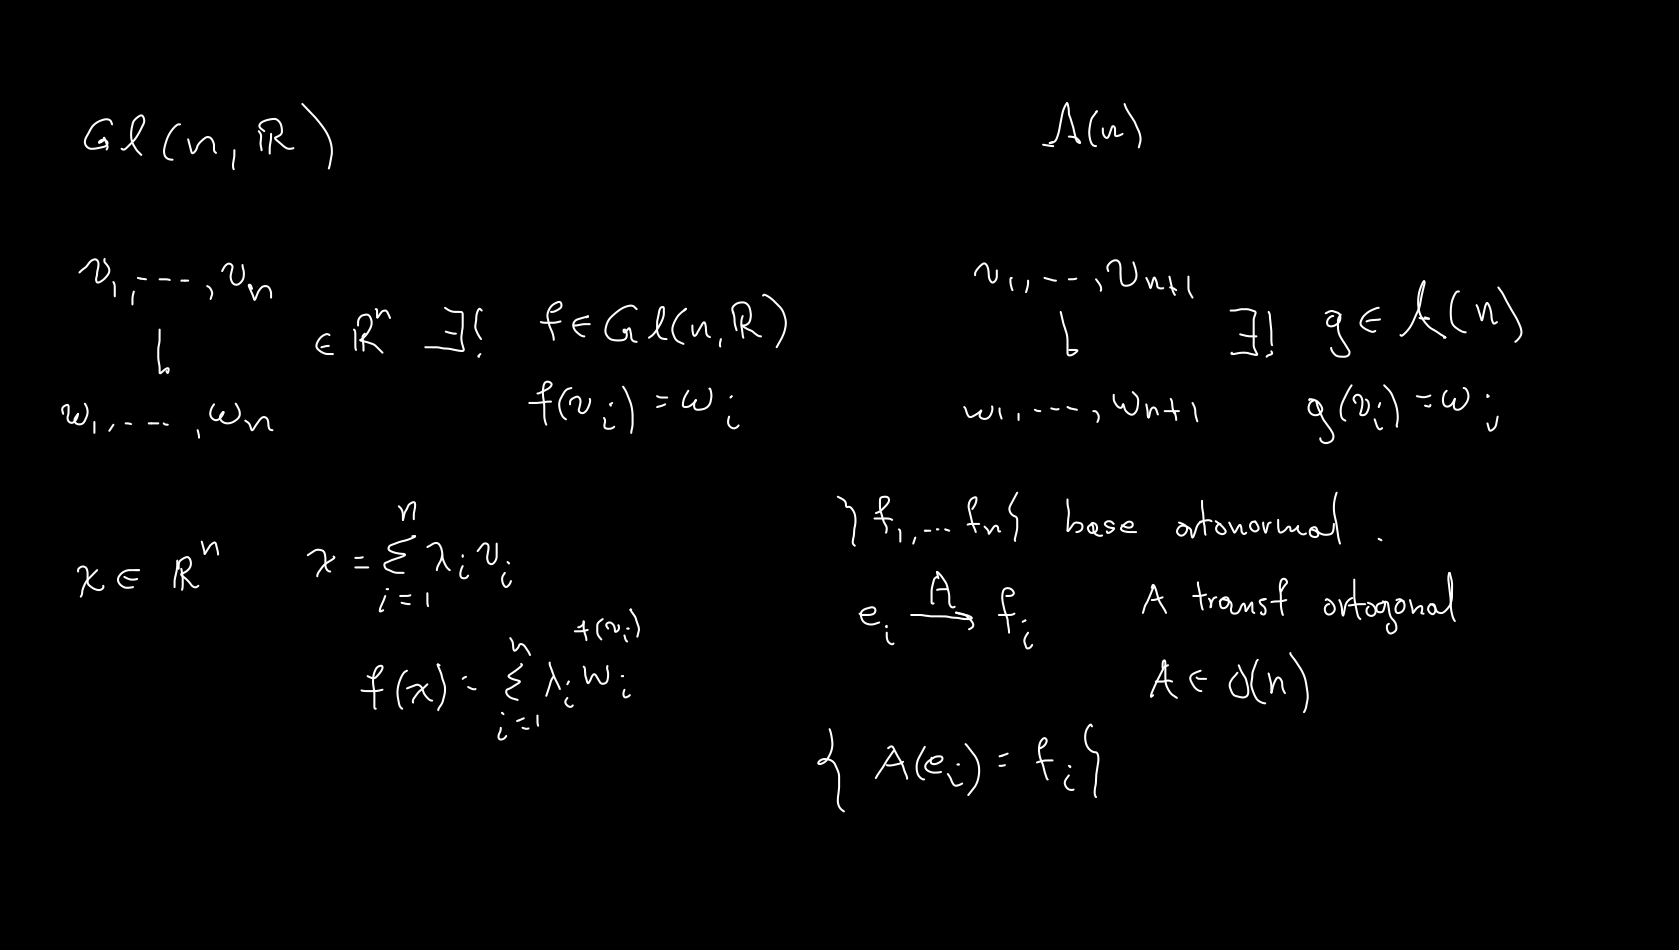 Gl(n, ℝ)
v₁, ---, vₙ
∈ ℝⁿ ∃! f ∈ Gl(n, ℝ)
w₁, ---, wₙ
f(vᵢ) = wᵢ
x ∈ ℝⁿ x = Σᵢ₌₁ⁿ λᵢ vᵢ
f(vᵢ)
f(x) = Σᵢ₌₁ⁿ λᵢ wᵢ
A(n)
v₁, --, vₙ₊₁
∃! g ∈ A(n)
w₁, ---, wₙ₊₁
g(vᵢ) = wᵢ
}f₁, ... fₙ{ base ortonormal.
eᵢ →ᴬ fᵢ A transf ortogonal
A ∈ O(n)
{ A(eᵢ) = fᵢ}